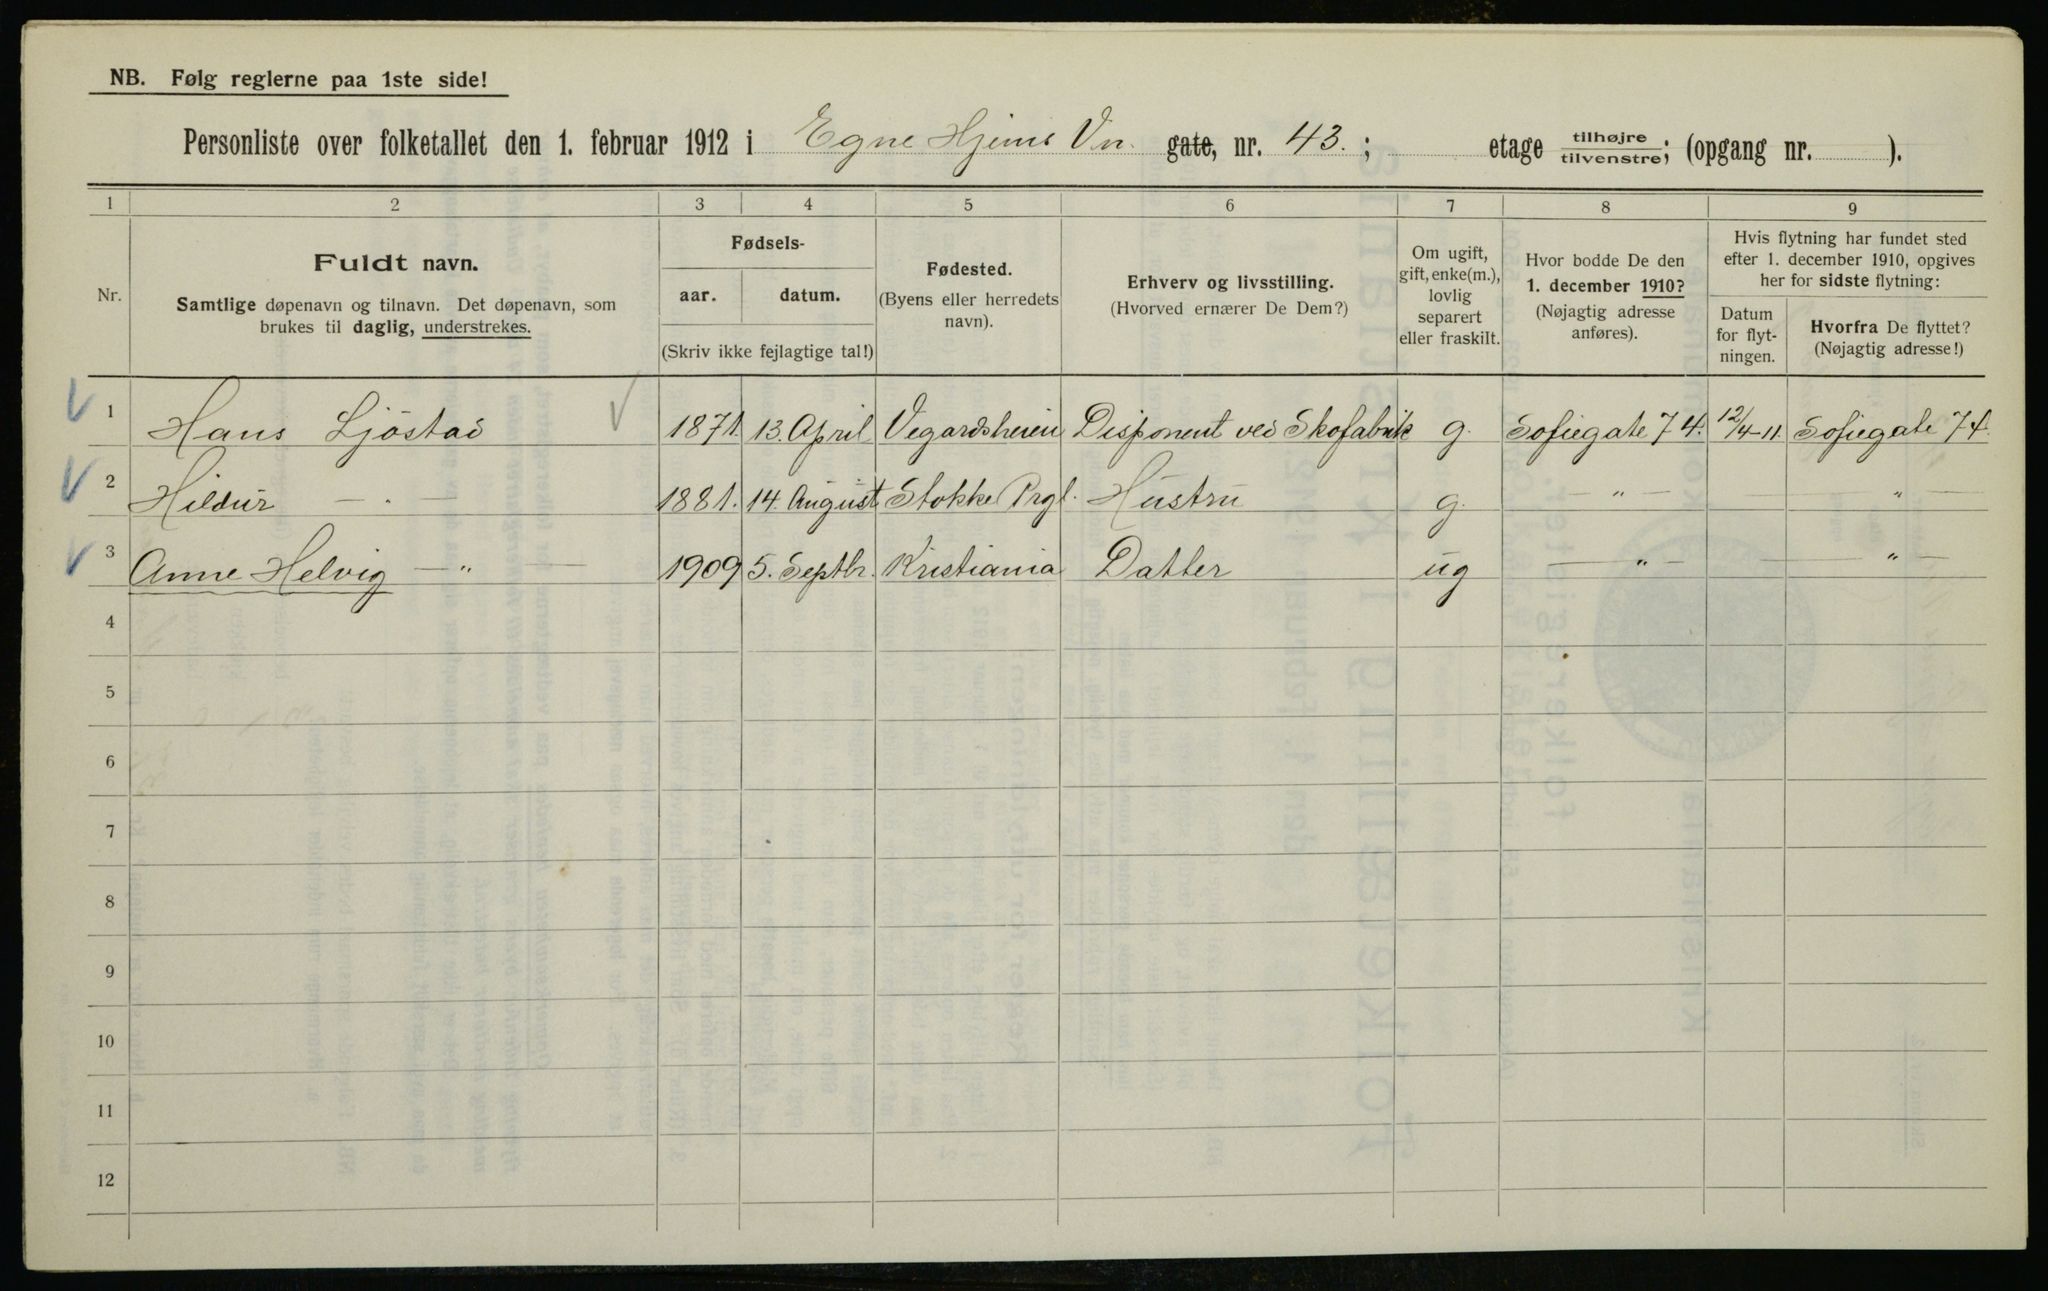 NB. Følg reglerne paa 1ste side!
Personliste over folketallet den 1. februar 1912 i Egne Hjems Vn. gate, nr. 43. ; etage tilhøjre/tilvenstre; (opgang nr. ).
1 2 3 4 5 6 7 8 9
Nr.
Fuldt navn.
Samtlige døpenavn og tilnavn. Det døpenavn, som
brukes til daglig, understrekes.
Fødsels-
aar. datum.
(Skriv ikke fejlagtige tal!)
Fødested.
(Byens eller herredets
navn).
Erhverv og livsstilling.
(Hvorved ernærer De Dem?)
Om ugift,
gift, enke(m.),
lovlig
separert
eller fraskilt.
Hvor bodde De den
1. december 1910?
(Nøjagtig adresse
anføres).
Hvis flytning har fundet sted
efter 1. december 1910, opgives
her for sidste flytning:
Datum
for flyt-
ningen.
Hvorfra De flyttet?
(Nøjagtig adresse!)
1 Hans Ljöstad 1871. 13. April Vegardsheien Disponent ved Skofabrik g. Sofiegate 74. 12/4-11. Sofiegate 74.
2 Hildur — " — 1881. 14. August Stokke Prgl. Hustru g. — " — " —
3 Anne Helvig — " — 1909 5. Septbr. Kristiania Datter ug — " — — " —
4
5
6
7
8
9
10
11
12